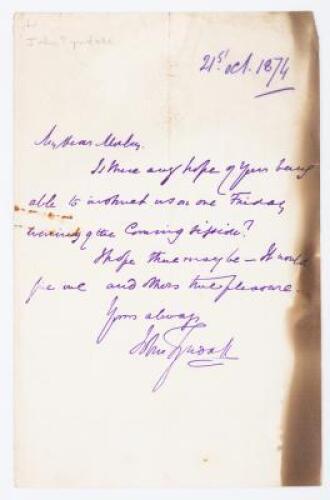 John Tyndall
21st Oct. 1874
My dear Morley.
Is there any hope of your being
able to instruct us on one Friday
evening of the Coming Session?
I hope there may be — It would
give me and others true pleasure —
Yours always
John Tyndall